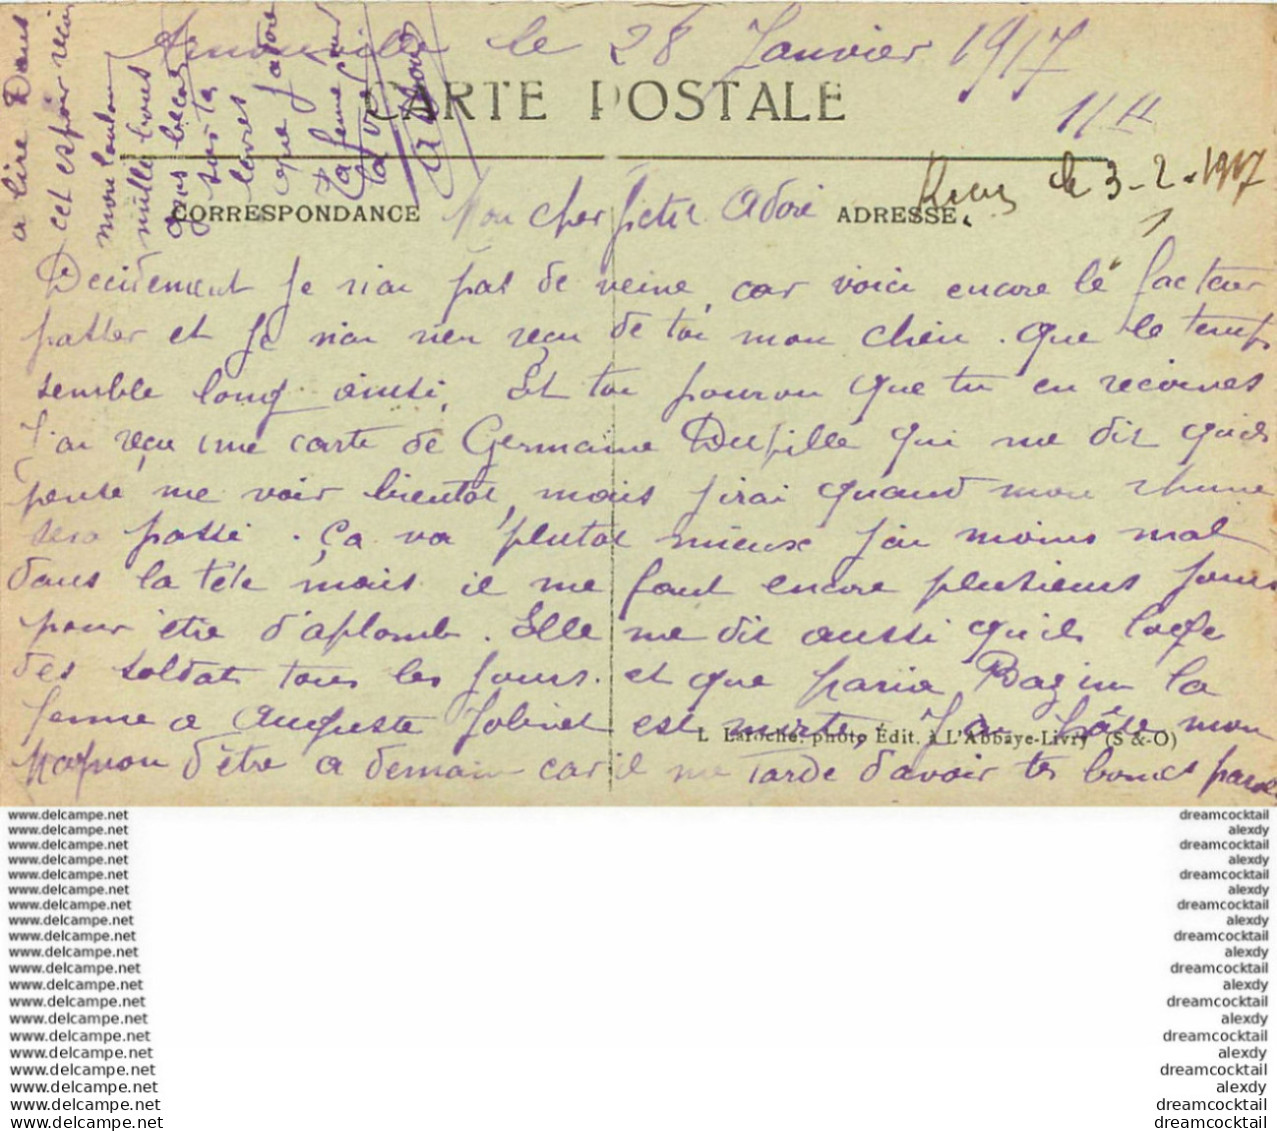 le 28 Janvier 1917
CARTE POSTALE
11H
Reçu le 3-2-1917
1
CORRESPONDANCE
Mon cher petit Adoré
ADRESSE
Decidement je n'ai pas de veine, car voici encore le facteur
passer et je n'ai rien reçu de toi mon cheri. Que le temps
semble long ainsi. Et toi pourvu que tu en recoives
J'ai reçu une carte de Germaine Dupille qui me dit qu'elle
pense me voir bientot, mais j'irai quand mon rhume
sera passé. Ça va plutot mieux j'ai moins mal
dans la tête mais il me faut encore plusieurs jours
pour être d'aplomb. Elle me dit aussi qu'ils loge
des soldats tous les jours. et que Bazin la
femme a Auguste est morte, J'ai hâte mon
d'être a demain car il me tarde d'avoir tes bonnes
L Laroche, photo Édit. à L'Abbaye-Livry (S-&-O)
a lire Dans
cet espoir reçois
mon loulou
mille bons
gros becots
sur ta
levres
que j'adore
Ta femme pour
la vie
www.delcampe.net
www.delcampe.net
www.delcampe.net
www.delcampe.net
www.delcampe.net
www.delcampe.net
www.delcampe.net
www.delcampe.net
www.delcampe.net
www.delcampe.net
www.delcampe.net
www.delcampe.net
www.delcampe.net
www.delcampe.net
www.delcampe.net
www.delcampe.net
www.delcampe.net
www.delcampe.net
www.delcampe.net
www.delcampe.net
dreamcocktail
alexdy
dreamcocktail
alexdy
dreamcocktail
alexdy
dreamcocktail
alexdy
dreamcocktail
alexdy
dreamcocktail
alexdy
dreamcocktail
alexdy
dreamcocktail
alexdy
dreamcocktail
alexdy
dreamcocktail
dreamcocktail